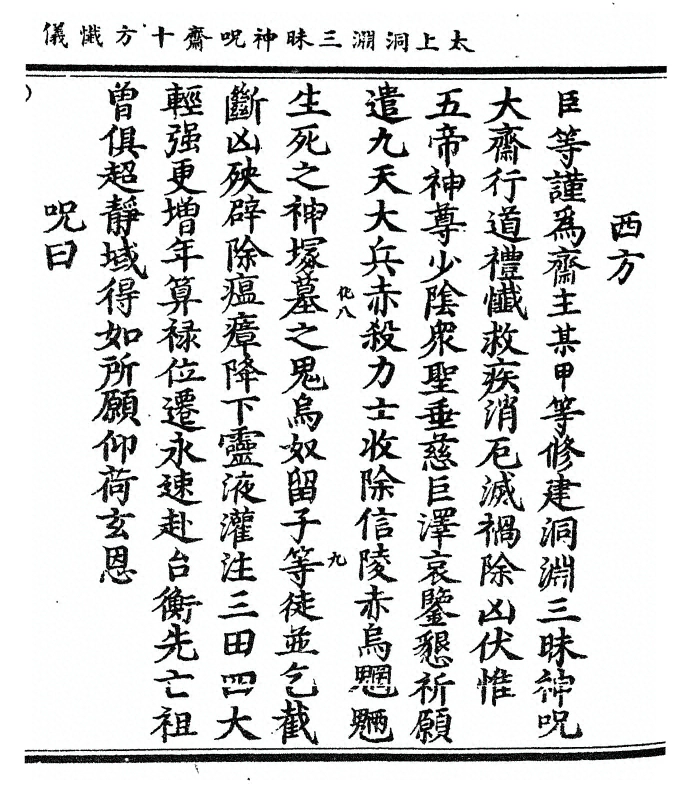 太上洞淵三昧神呪齋十方懺儀
西方
臣等謹爲齋主某甲等修建洞淵三昧神呪
大齋行道禮懺救疾消厄滅禍除凶伏惟
五帝神尊少陰衆聖垂慈巨澤哀鑒懇祈願
遣九天大兵赤殺力士收除信陵赤烏魍魎
化八
生死之神塚墓之鬼烏奴留子等徒並乞截
九
斷凶殃辟除瘟瘴降下靈液灌注三田四大
輕强更增年算禄位遷永速赴台衡先亡祖
曾俱超靜域得如所願仰荷玄恩
呪曰